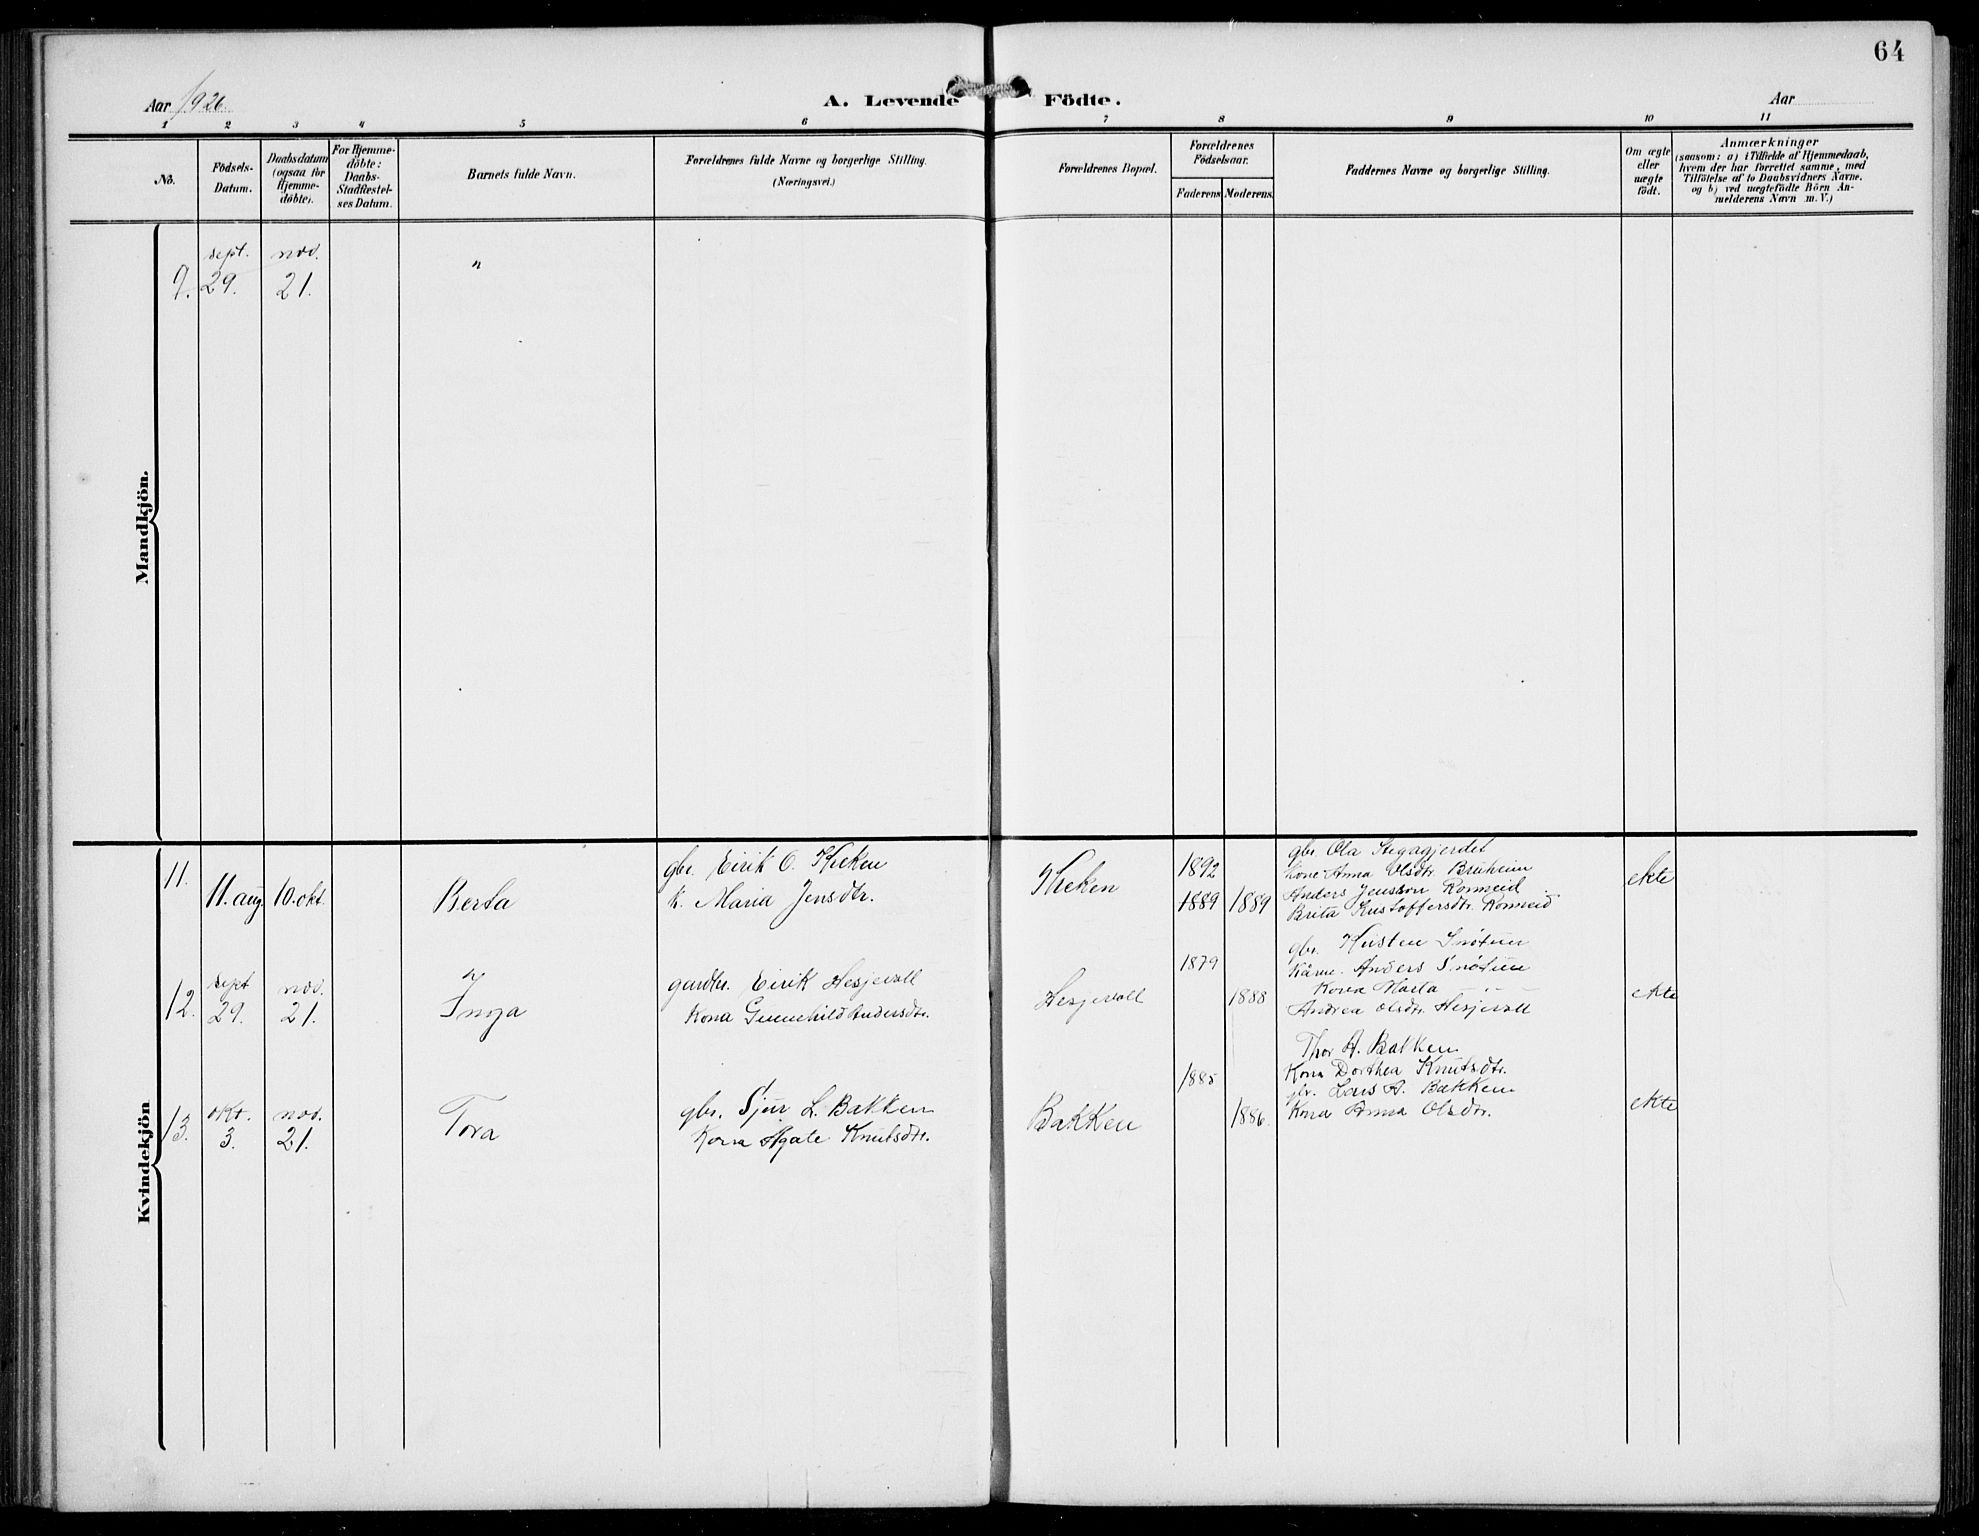 64
Aar 1926.
A. Levende Födte.
Aar
1 2 3 4 5 6 7 8 9 10 11
No.
Födsels-
Datum.
Daabsdatum
(ogsaa for
Hjemme-
döbte).
For Hjemme-
döbte:
Daabs-
Stadfæstel-
ses Datum.
Barnets fulde Navn.
Forældrenes fulde Navne og borgerlige Stilling.
(Næringsvei.)
Forældrenes Bopæl.
Forældrenes
Födselsaar.
Faderens Moderens.
Faddernes Navne og borgerlige Stilling.
Om ægte
eller
uægte
födt.
Anmærkninger
(saasom: a) i Tilfælde af Hjemmedaab,
hvem der har forrettet samme, med
Tilföielse af to Daabsvidners Navne.
og b) ved uægtefödte Börn An-
melderens Navn m. V.)
Mandkjön.
sept. nov.
9. 29. 21. "
Kvindekjön
11.
11. aug. 10. okt.
Berta
gbr. Eirik O.
k. Maria Jensdtr.
1892
1889 1889
gbr. Ola Stegagjerdet
Kone Anna Olsdtr. Bruheim
Anders Jensson Rommeid
Brita Kristoffersdtr. Rommeid
ekte
12.
sept nov.
29. 21.
Inga
gardbr. Eirik Hesjevoll
Kona Gunnhild Andersdtr.
Hesjevoll
1879
1888
gbr. Kristen Snøtun
Kårm. Anders Snøtun
Kona Marta " "
Andrea Olsdtr. Hesjevoll
ekte
13.
okt. nov.
3. 21.
Tora
gbr. Sjur L. Bakken
Kona Agate Knutsdtr.
Bakken
1885
1886.
Thor A. Bakken
Kona Dorthea Knutsdtr.
gbr. Lars A. Bakken
Kona Anna Olsdtr.
ekte